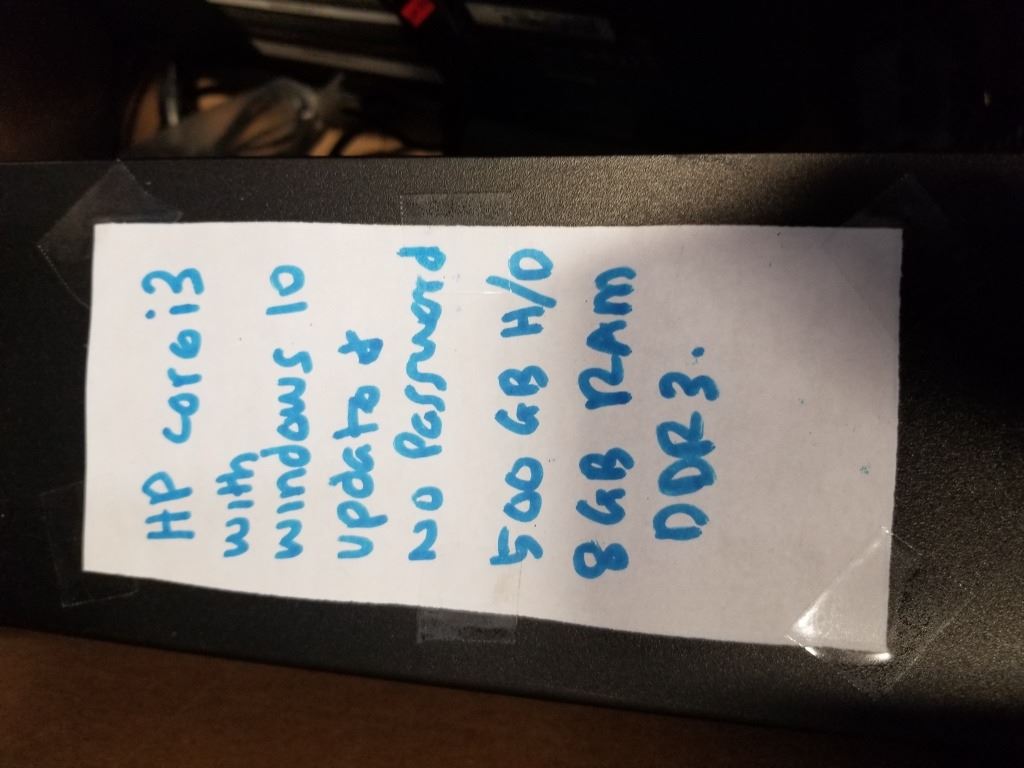 HP corei3
with
windows 10
update &
No Password
500 GB H/D
8 GB RAM
DDR3.